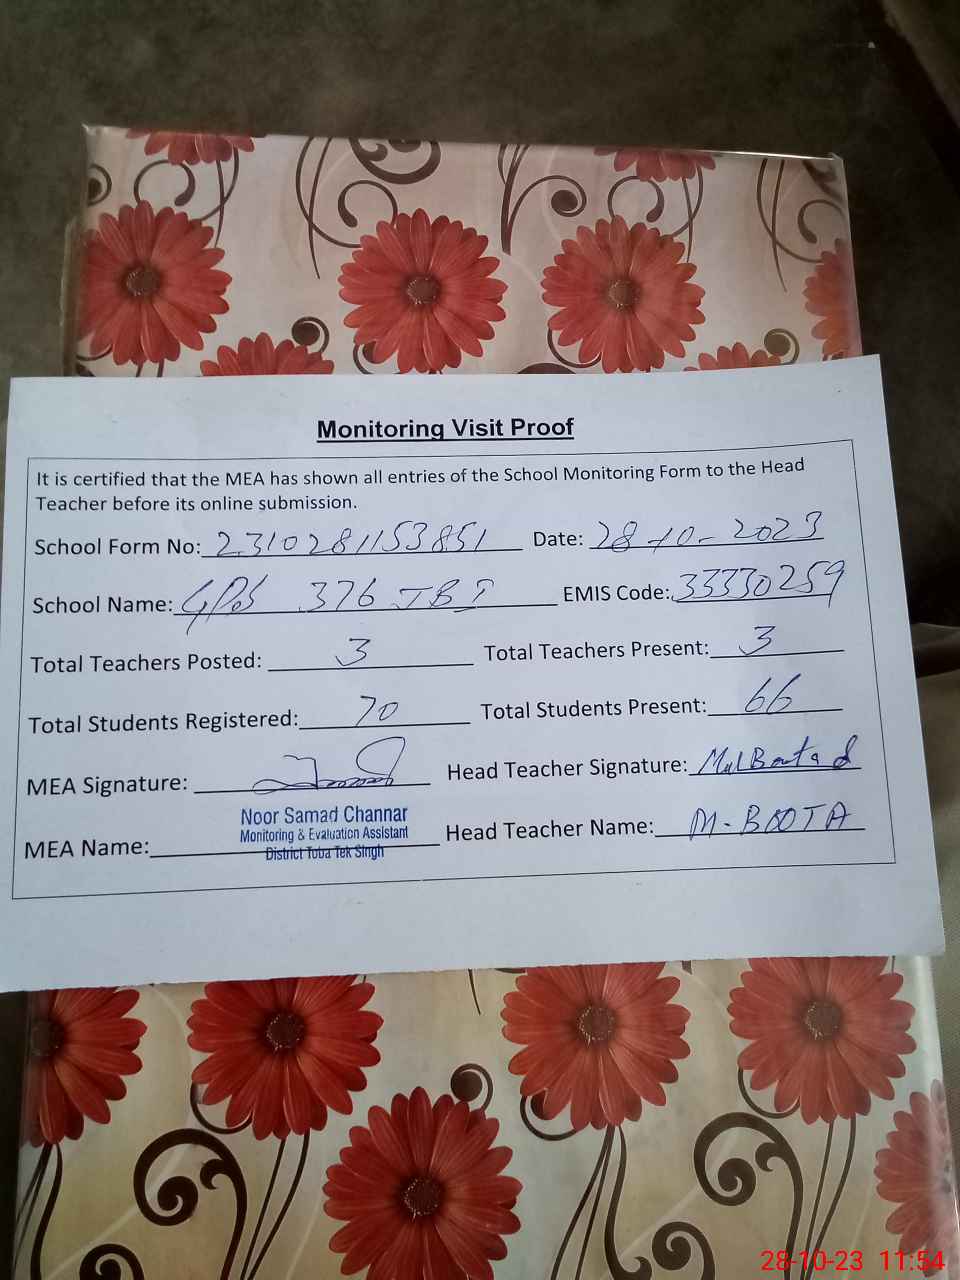 Monitoring Visit Proof
It is certified that the MEA has shown all entries of the School Monitoring Form to the Head
Teacher before its online submission.
School Form No: 2310281153851 Date: 28-10-2023
School Name: GPS 376 JB I EMIS Code: 33330259
Total Teachers Posted: 3 Total Teachers Present: 3
Total Students Registered: 70 Total Students Present: 66
MEA Signature: Head Teacher Signature:
MEA Name: Noor Samad Channar Head Teacher Name: M-BOOTA
Monitoring & Evaluation Assistant
District Toba Tek Singh
28-10-23 11:54